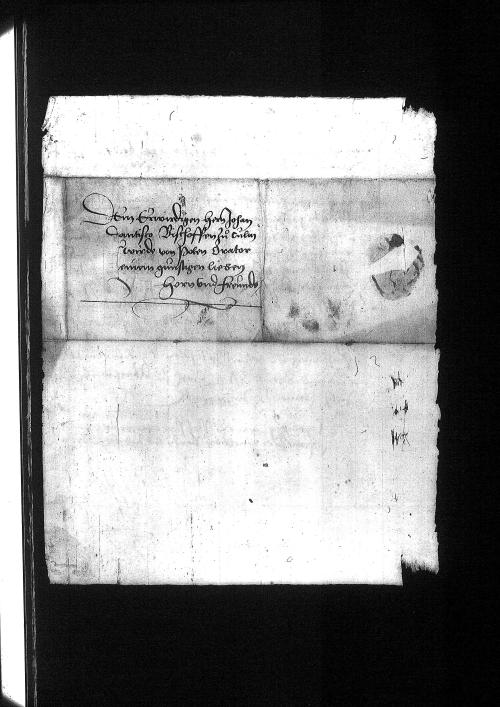 Dem Erwirdigen hern Johan
Dantisco Bischoffen zů Culm
von Polen Orator
meinem gunstigen lieben
Hern vnd freundt